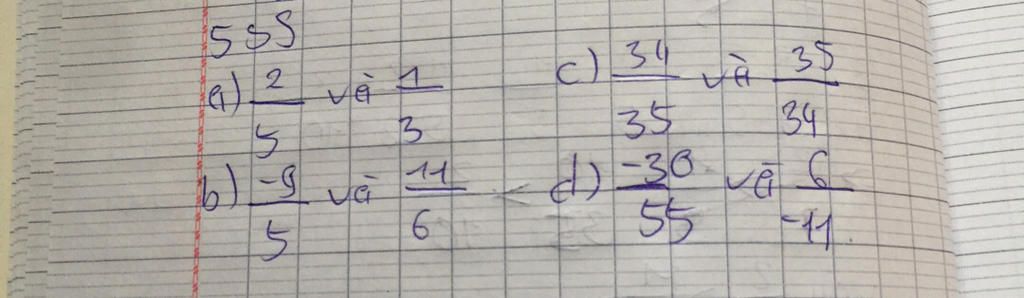 5 SS
a) 2/5 và 1/3 c) 34/35 và 35/34
b) -9/5 và 11/6 d) -30/55 và 6/-11